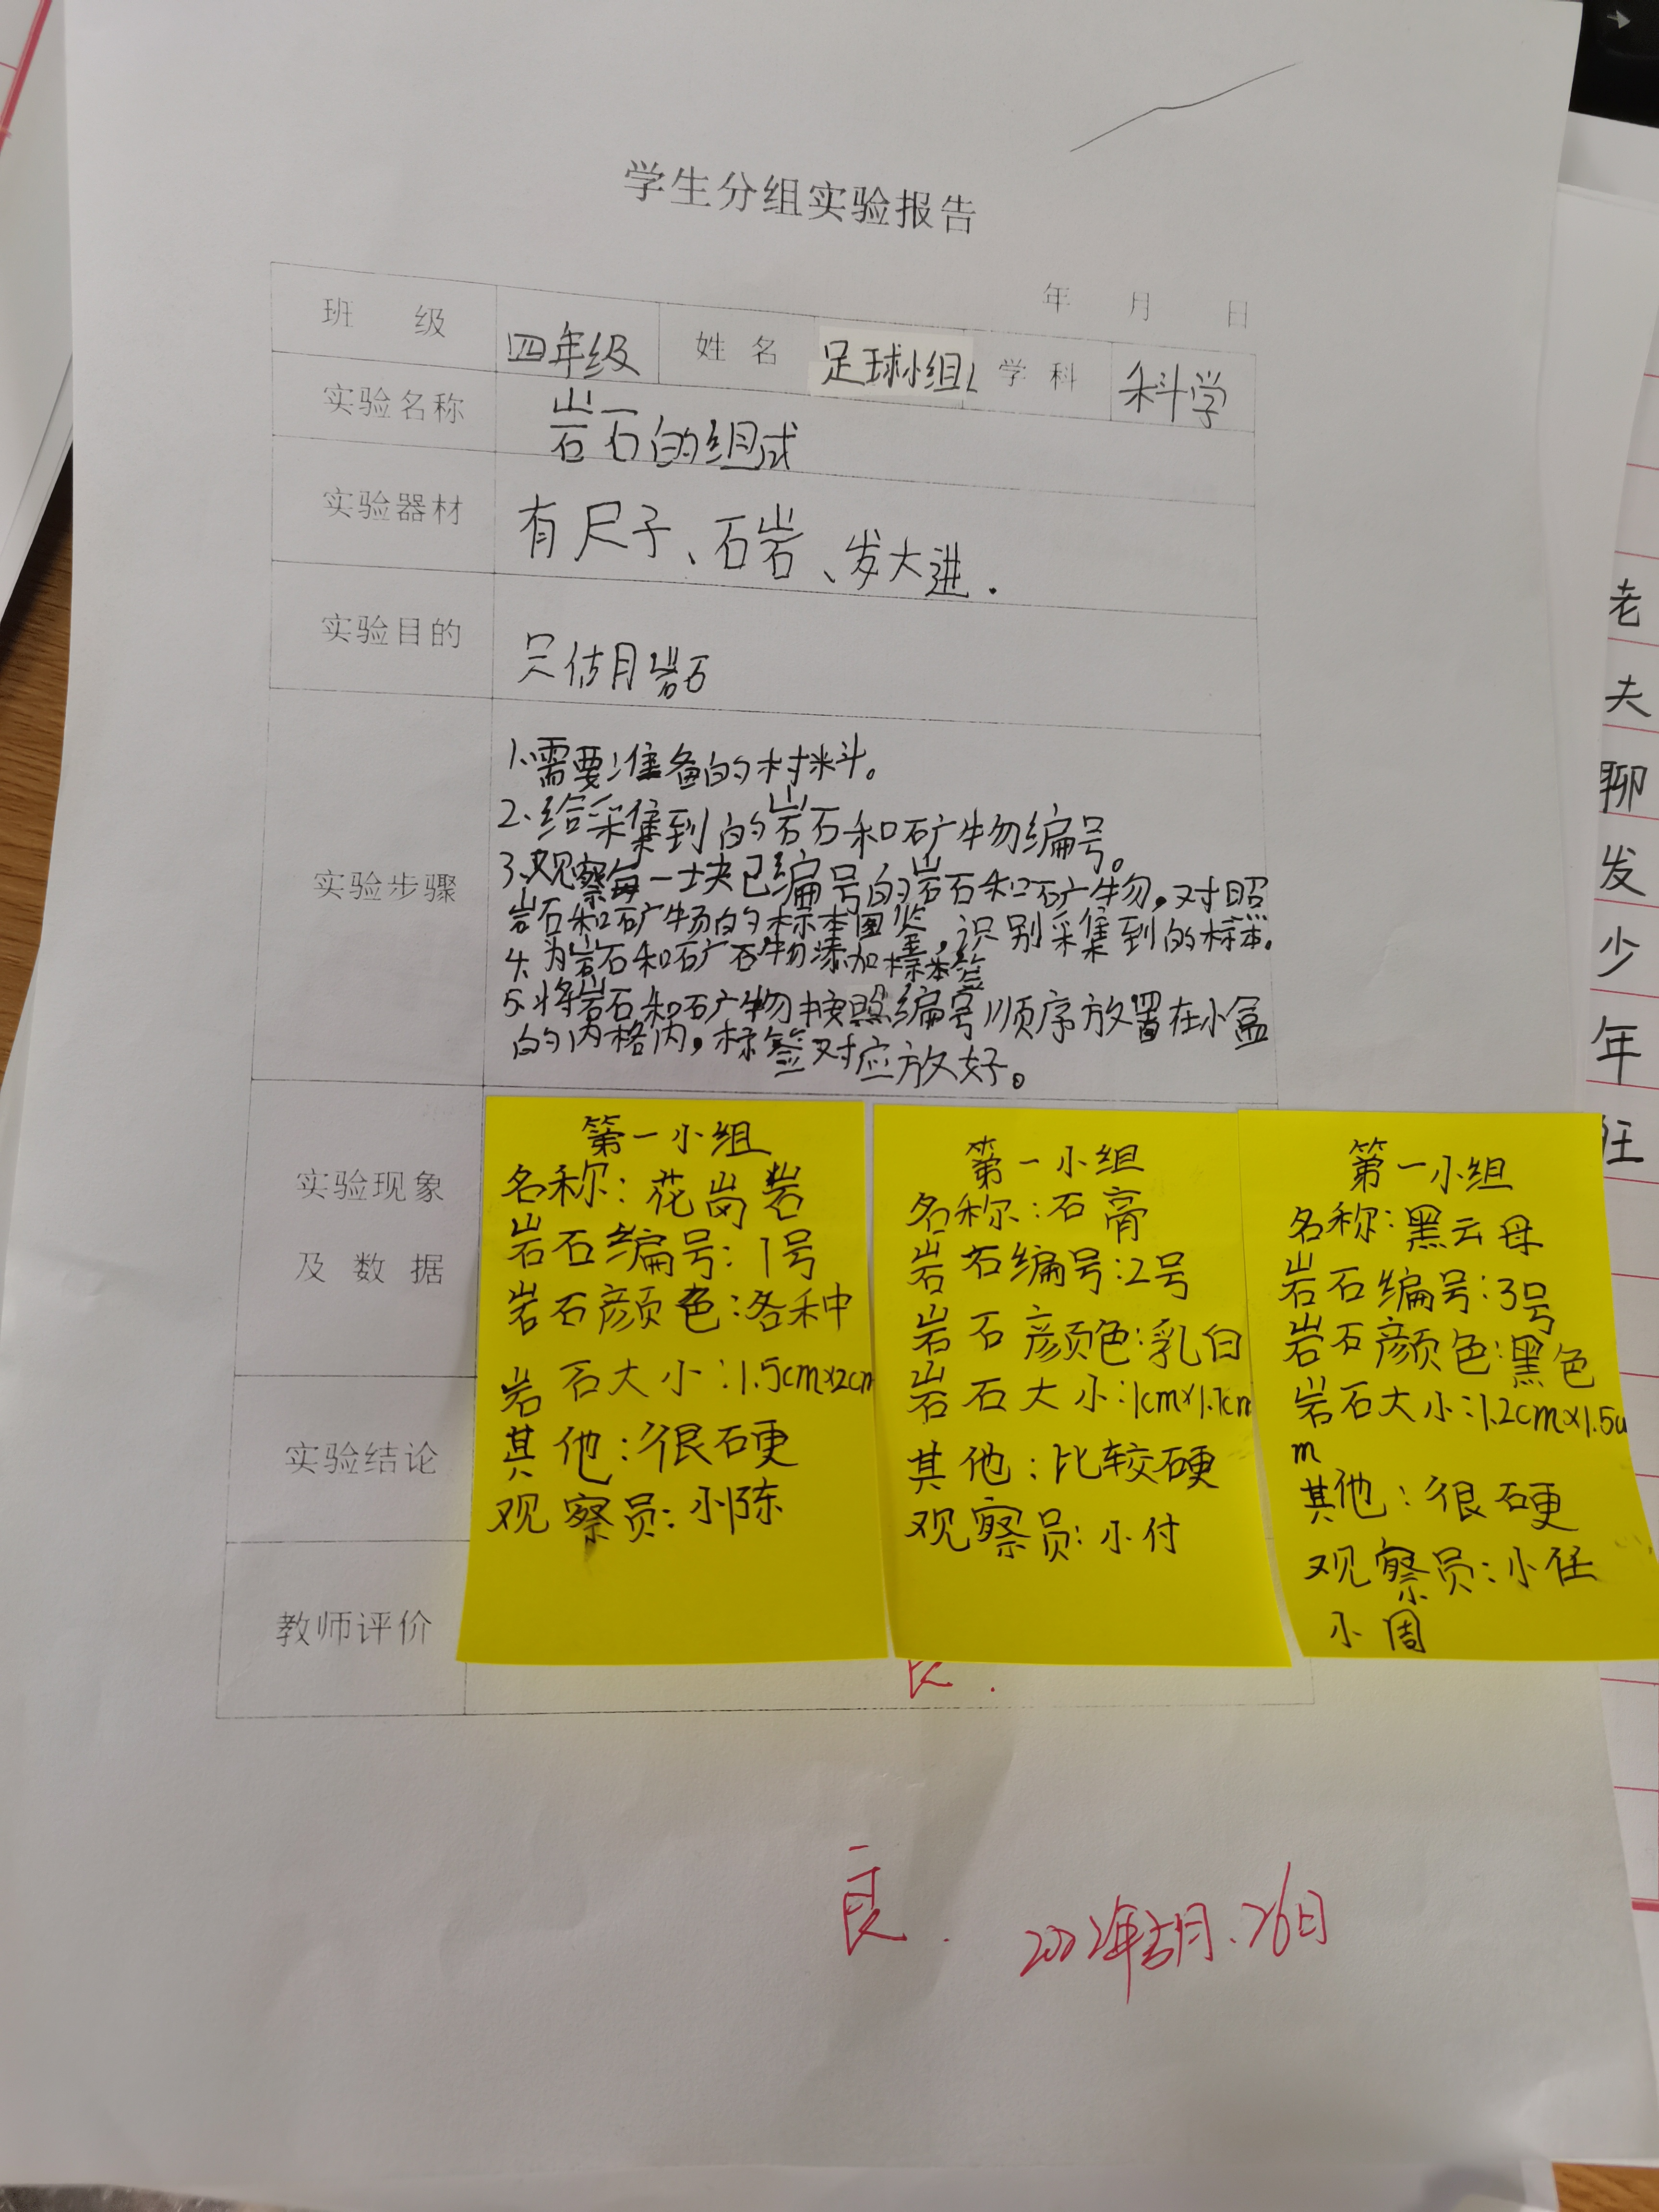 学生分组实验报告
年 月 日
班 级 四年级 姓名 足球小组 学科 科学
实验名称 岩石的组成
实验器材 有尺子、石岩、发大进.
实验目的 只估月岩石
实验步骤
1.需要准备的材料。
2.给采集到的岩石和矿物编号。
3.观察每一块已编号的岩石和矿物,对照
岩石和矿物的标本图鉴,识别采集到的标本.
4.为岩石和矿石物添加标本签
5.将岩石和矿物按照编号顺序放置在小盒
的内格内,标签对应放好。
实验现象
及数据
实验结论
教师评价
第一小组
名称:花岗岩
岩石编号:1号
岩石颜色:各种
岩石大小:1.5cm×2cm
其他:很硬
观察员:小陈
第一小组
名称:石膏
岩石编号:2号
岩石颜色:乳白
岩石大小:1cm×1.1cm
其他:比较硬
观察员:小付
第一小组
名称:黑云母
岩石编号:3号
岩石颜色:黑色
岩石大小:1.2cm×1.5c
m
其他:很硬
观察员:小任
小周
良.
2022年 月.26日
老
夫
聊
发
少
年
狂